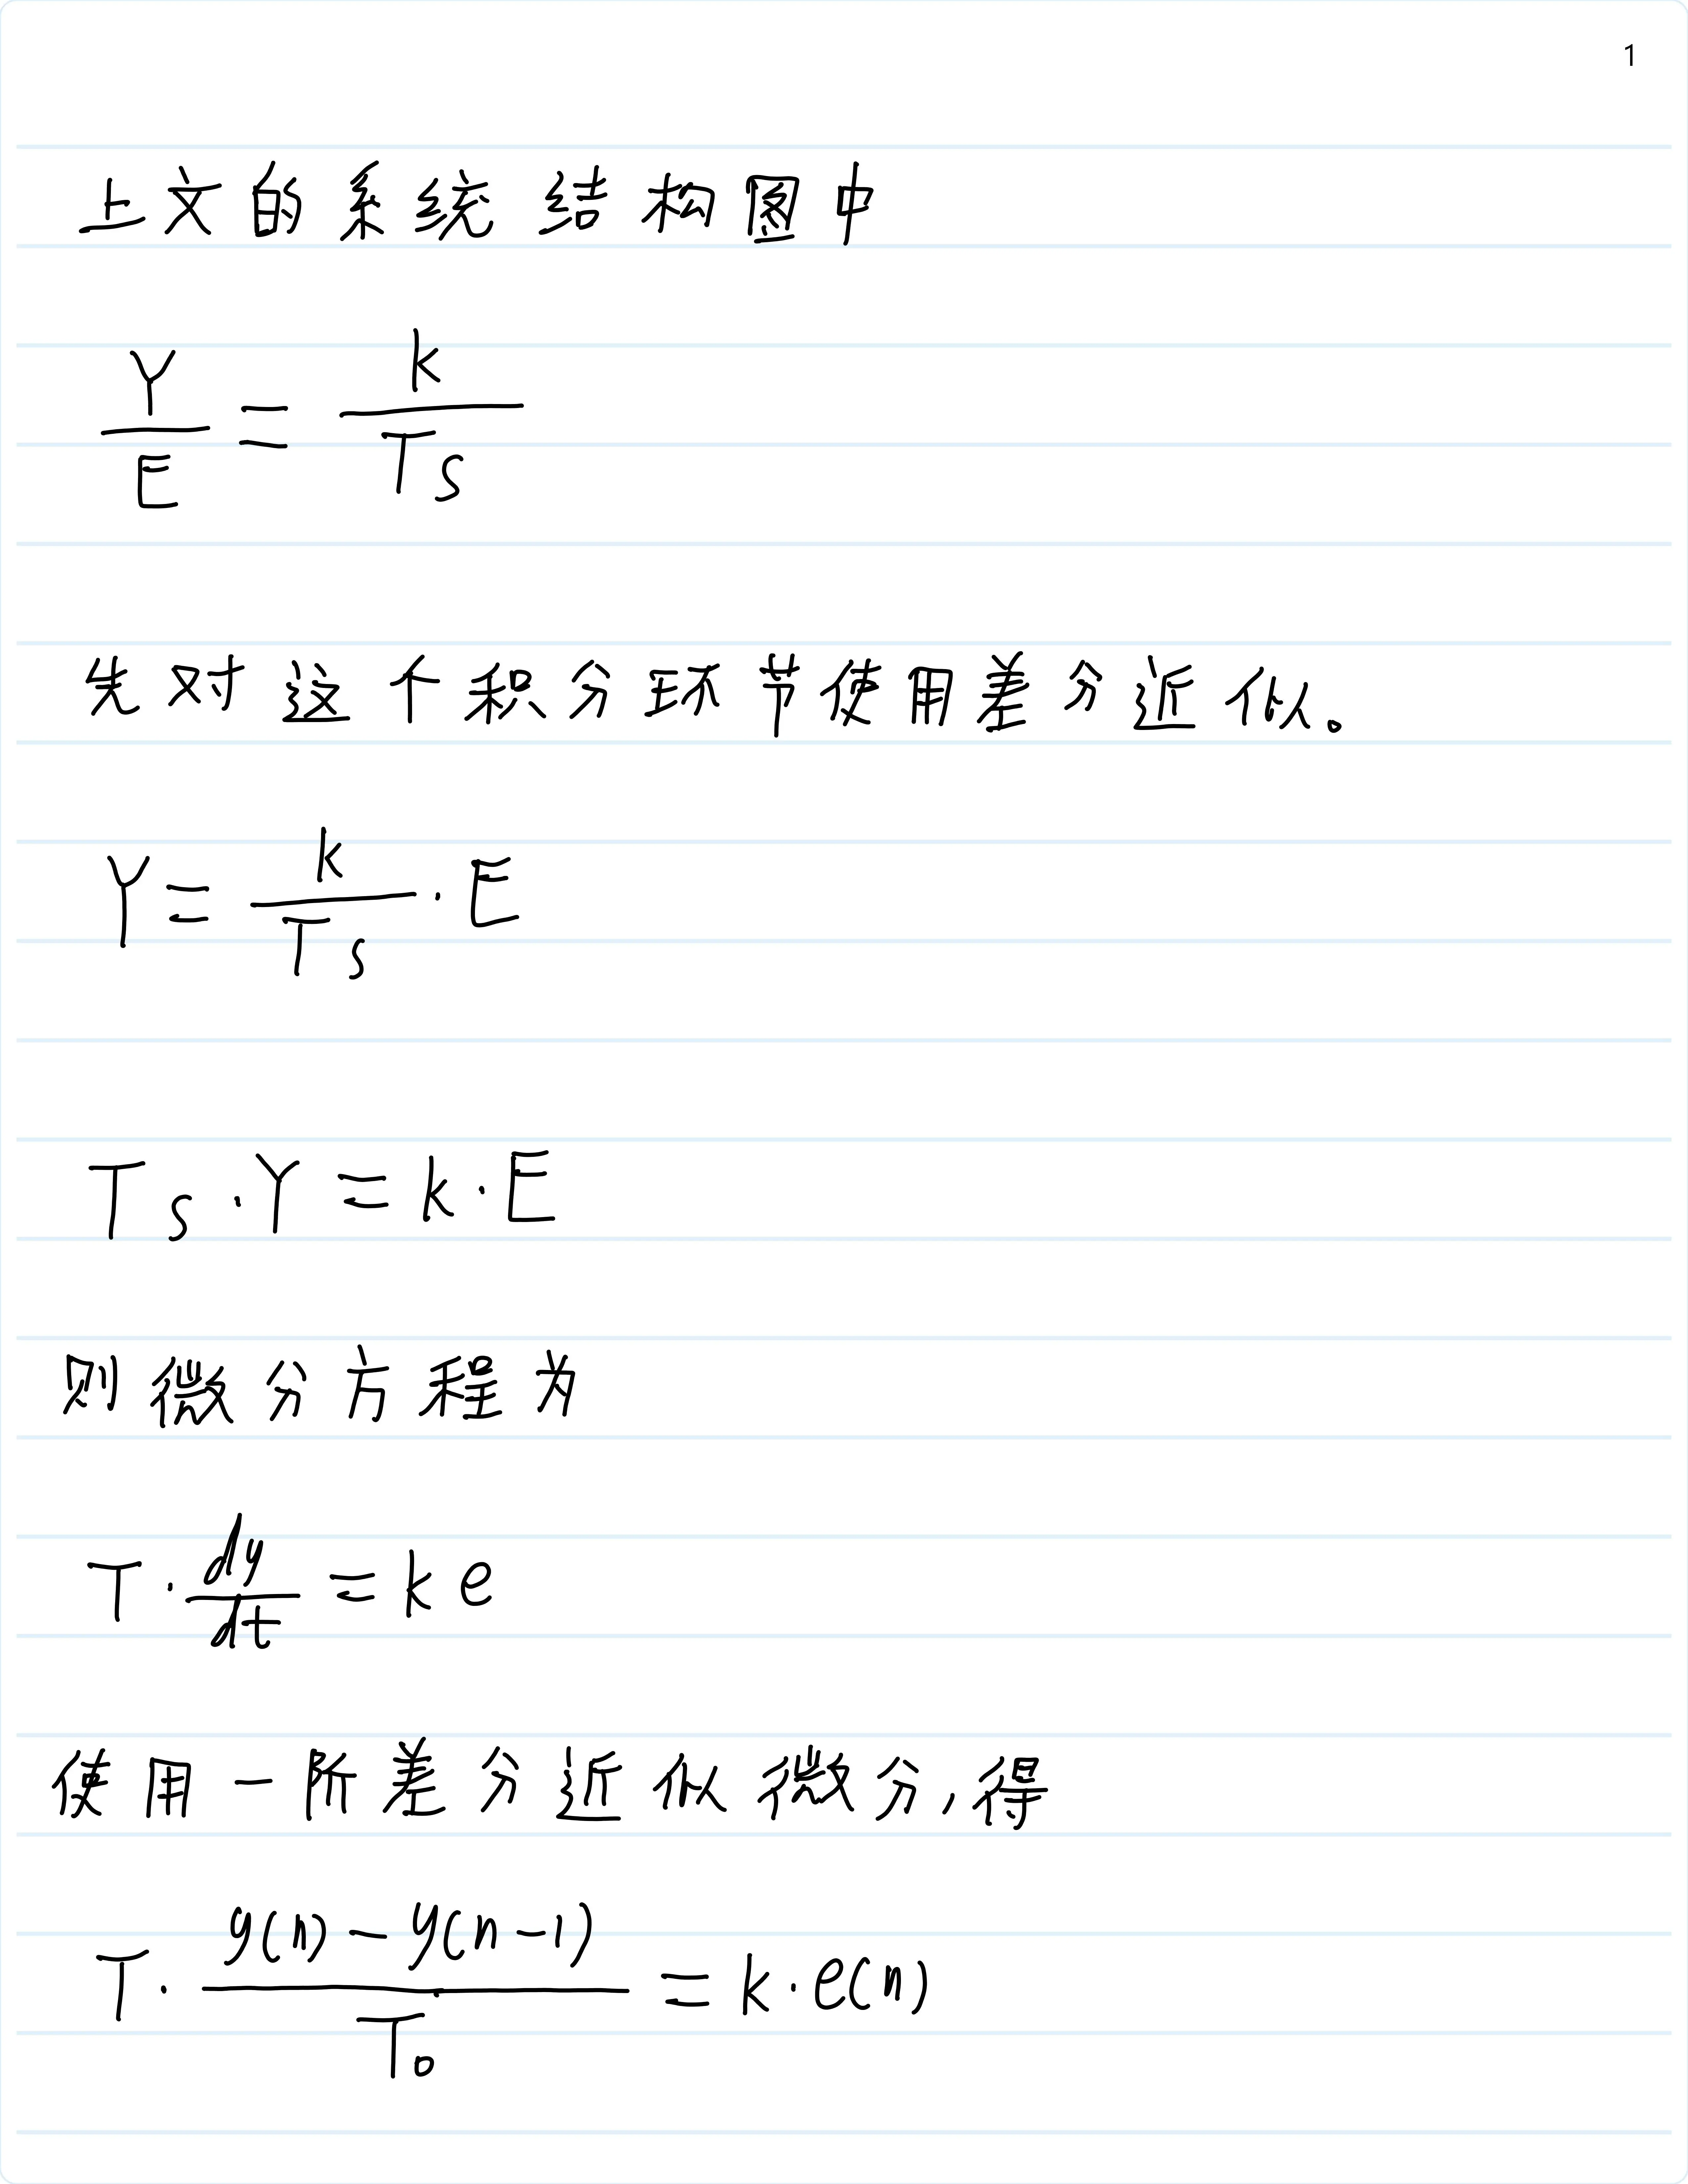 1
上文的系统结构图中
Y/E = k/(Ts)
先对这个积分环节使用差分近似。
Y = k/(Ts) · E
Ts · Y = k · E
则微分方程为
T · dy/dt = ke
使用一阶差分近似微分,得
T · (y(n) - y(n-1))/T₀ = k · e(n)